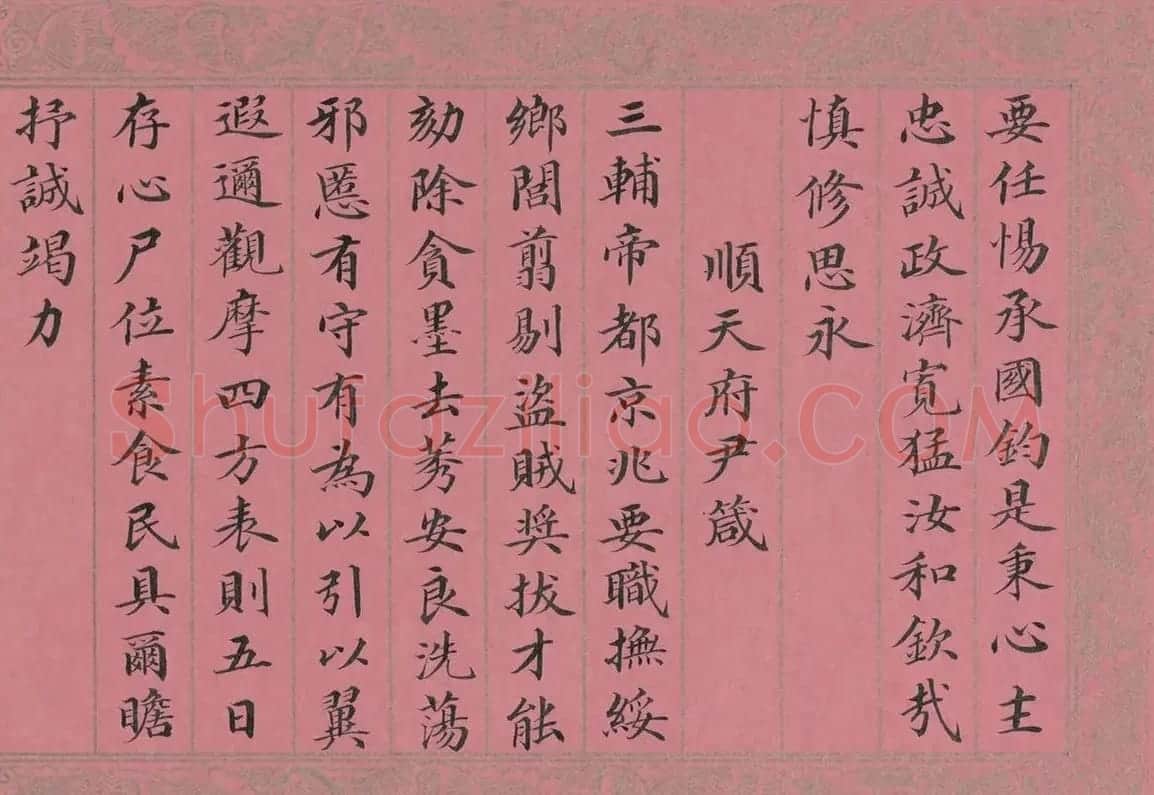 要任惕承國鈞是秉心主
忠誠政濟寬猛汝和欽哉
慎修思永
順天府尹箴
三輔帝都京兆要職撫綏
鄉閭翦剔盜賊奨拔才能
劾除貪墨去莠安良洗蕩
邪慝有守有為以引以翼
遐邇觀摩四方表則五日
存心尸位素食民具爾瞻
抒誠竭力
Shufaziliao.COM